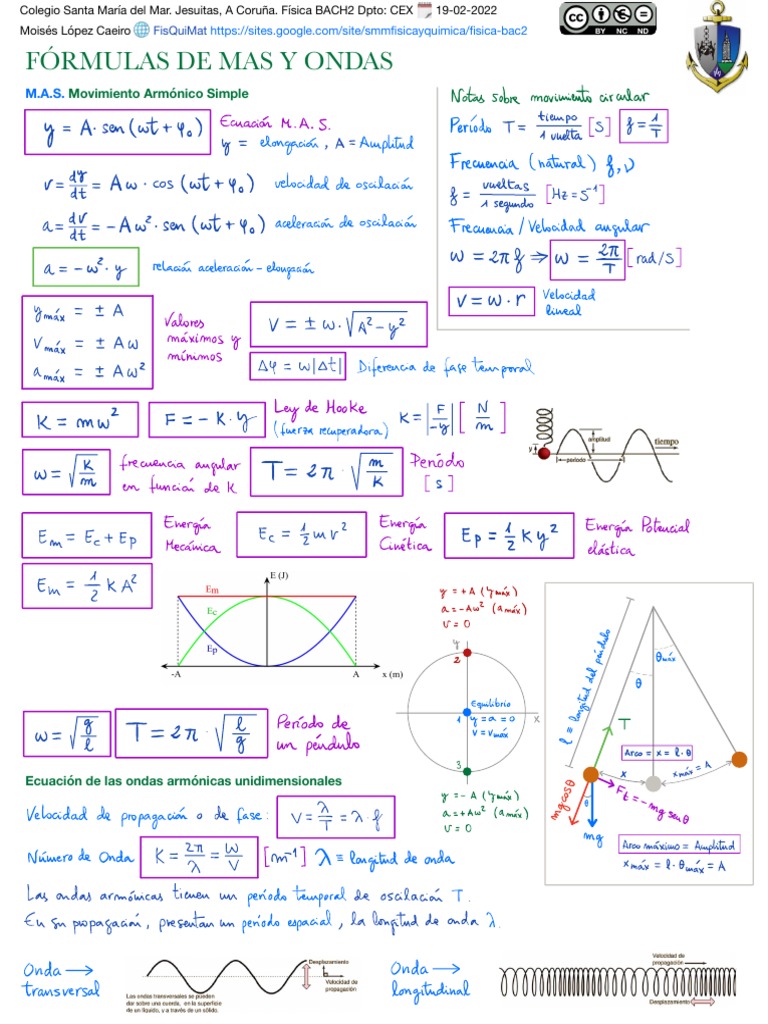 Colegio Santa María del Mar. Jesuitas, A Coruña. Física BACH2 Dpto: CEX 📅 19-02-2022
Moisés López Caeiro 🌐 FisQuiMat https://sites.google.com/site/smmfisicayquimica/fisica-bac2
cc BY NC ND
FÓRMULAS DE MAS Y ONDAS
M.A.S. Movimiento Armónico Simple
y = A · sen (ωt + φ₀)
Ecuación M.A.S.
y = elongación, A = Amplitud
v = dy/dt = Aω · cos (ωt + φ₀) velocidad de oscilación
a = dv/dt = −Aω² · sen (ωt + φ₀) aceleración de oscilación
a = −ω² · y relación aceleración – elongación
Notas sobre movimiento circular
Período T = tiempo/1 vuelta [s] f = 1/T
Frecuencia (natural) f, ν
f = vueltas/1 segundo [Hz = S⁻¹]
Frecuencia / Velocidad angular
ω = 2π f ⇒ ω = 2π/T [rad/s]
v = ω · r Velocidad lineal
y máx = ± A
v máx = ± Aω
a máx = ± Aω²
Valores máximos y mínimos
V = ± ω · √(A² − y²)
Δφ = ω|Δt| Diferencia de fase temporal
K = mω² F = − K · y Ley de Hooke (fuerza recuperadora) K = |F/−y| [N/m]
ω = √(K/m) frecuencia angular en función de K T = 2π · √(m/K) Período [s]
y amplitud tiempo
período
Em = Ec + Ep Energía Mecánica Ec = 1/2 m v² Energía Cinética Ep = 1/2 K y² Energía Potencial elástica
Em = 1/2 K A²
E (J)
Em
Ec
Ep
-A A x (m)
y = +A (y máx)
a = −Aω² (a máx)
v = 0
y
2
Equilibrio
1 y = a = 0 x
v = v máx
3
y = −A (y máx)
a = +Aω² (a máx)
v = 0
l ≡ longitud del péndulo
θ máx
θ
T
Arco = x = l · θ
x x máx = A
Ft = − mg sen θ
mg cos θ
θ
mg
Arco máximo = Amplitud
x máx = l · θ máx = A
ω = √(g/l) T = 2π · √(l/g) Período de un péndulo
Ecuación de las ondas armónicas unidimensionales
Velocidad de propagación o de fase: V = λ/T = λ · f
Número de Onda K = 2π/λ = ω/V [m⁻¹] λ ≡ longitud de onda
Las ondas armónicas tienen un período temporal de oscilación T.
En su propagación, presentan un período espacial, la longitud de onda λ.
Onda → transversal
Desplazamiento
Velocidad de propagación
Las ondas transversales se pueden
dar sobre una cuerda, en la superficie
de un líquido, y a través de un sólido.
Onda → longitudinal
Velocidad de propagación
Desplazamiento